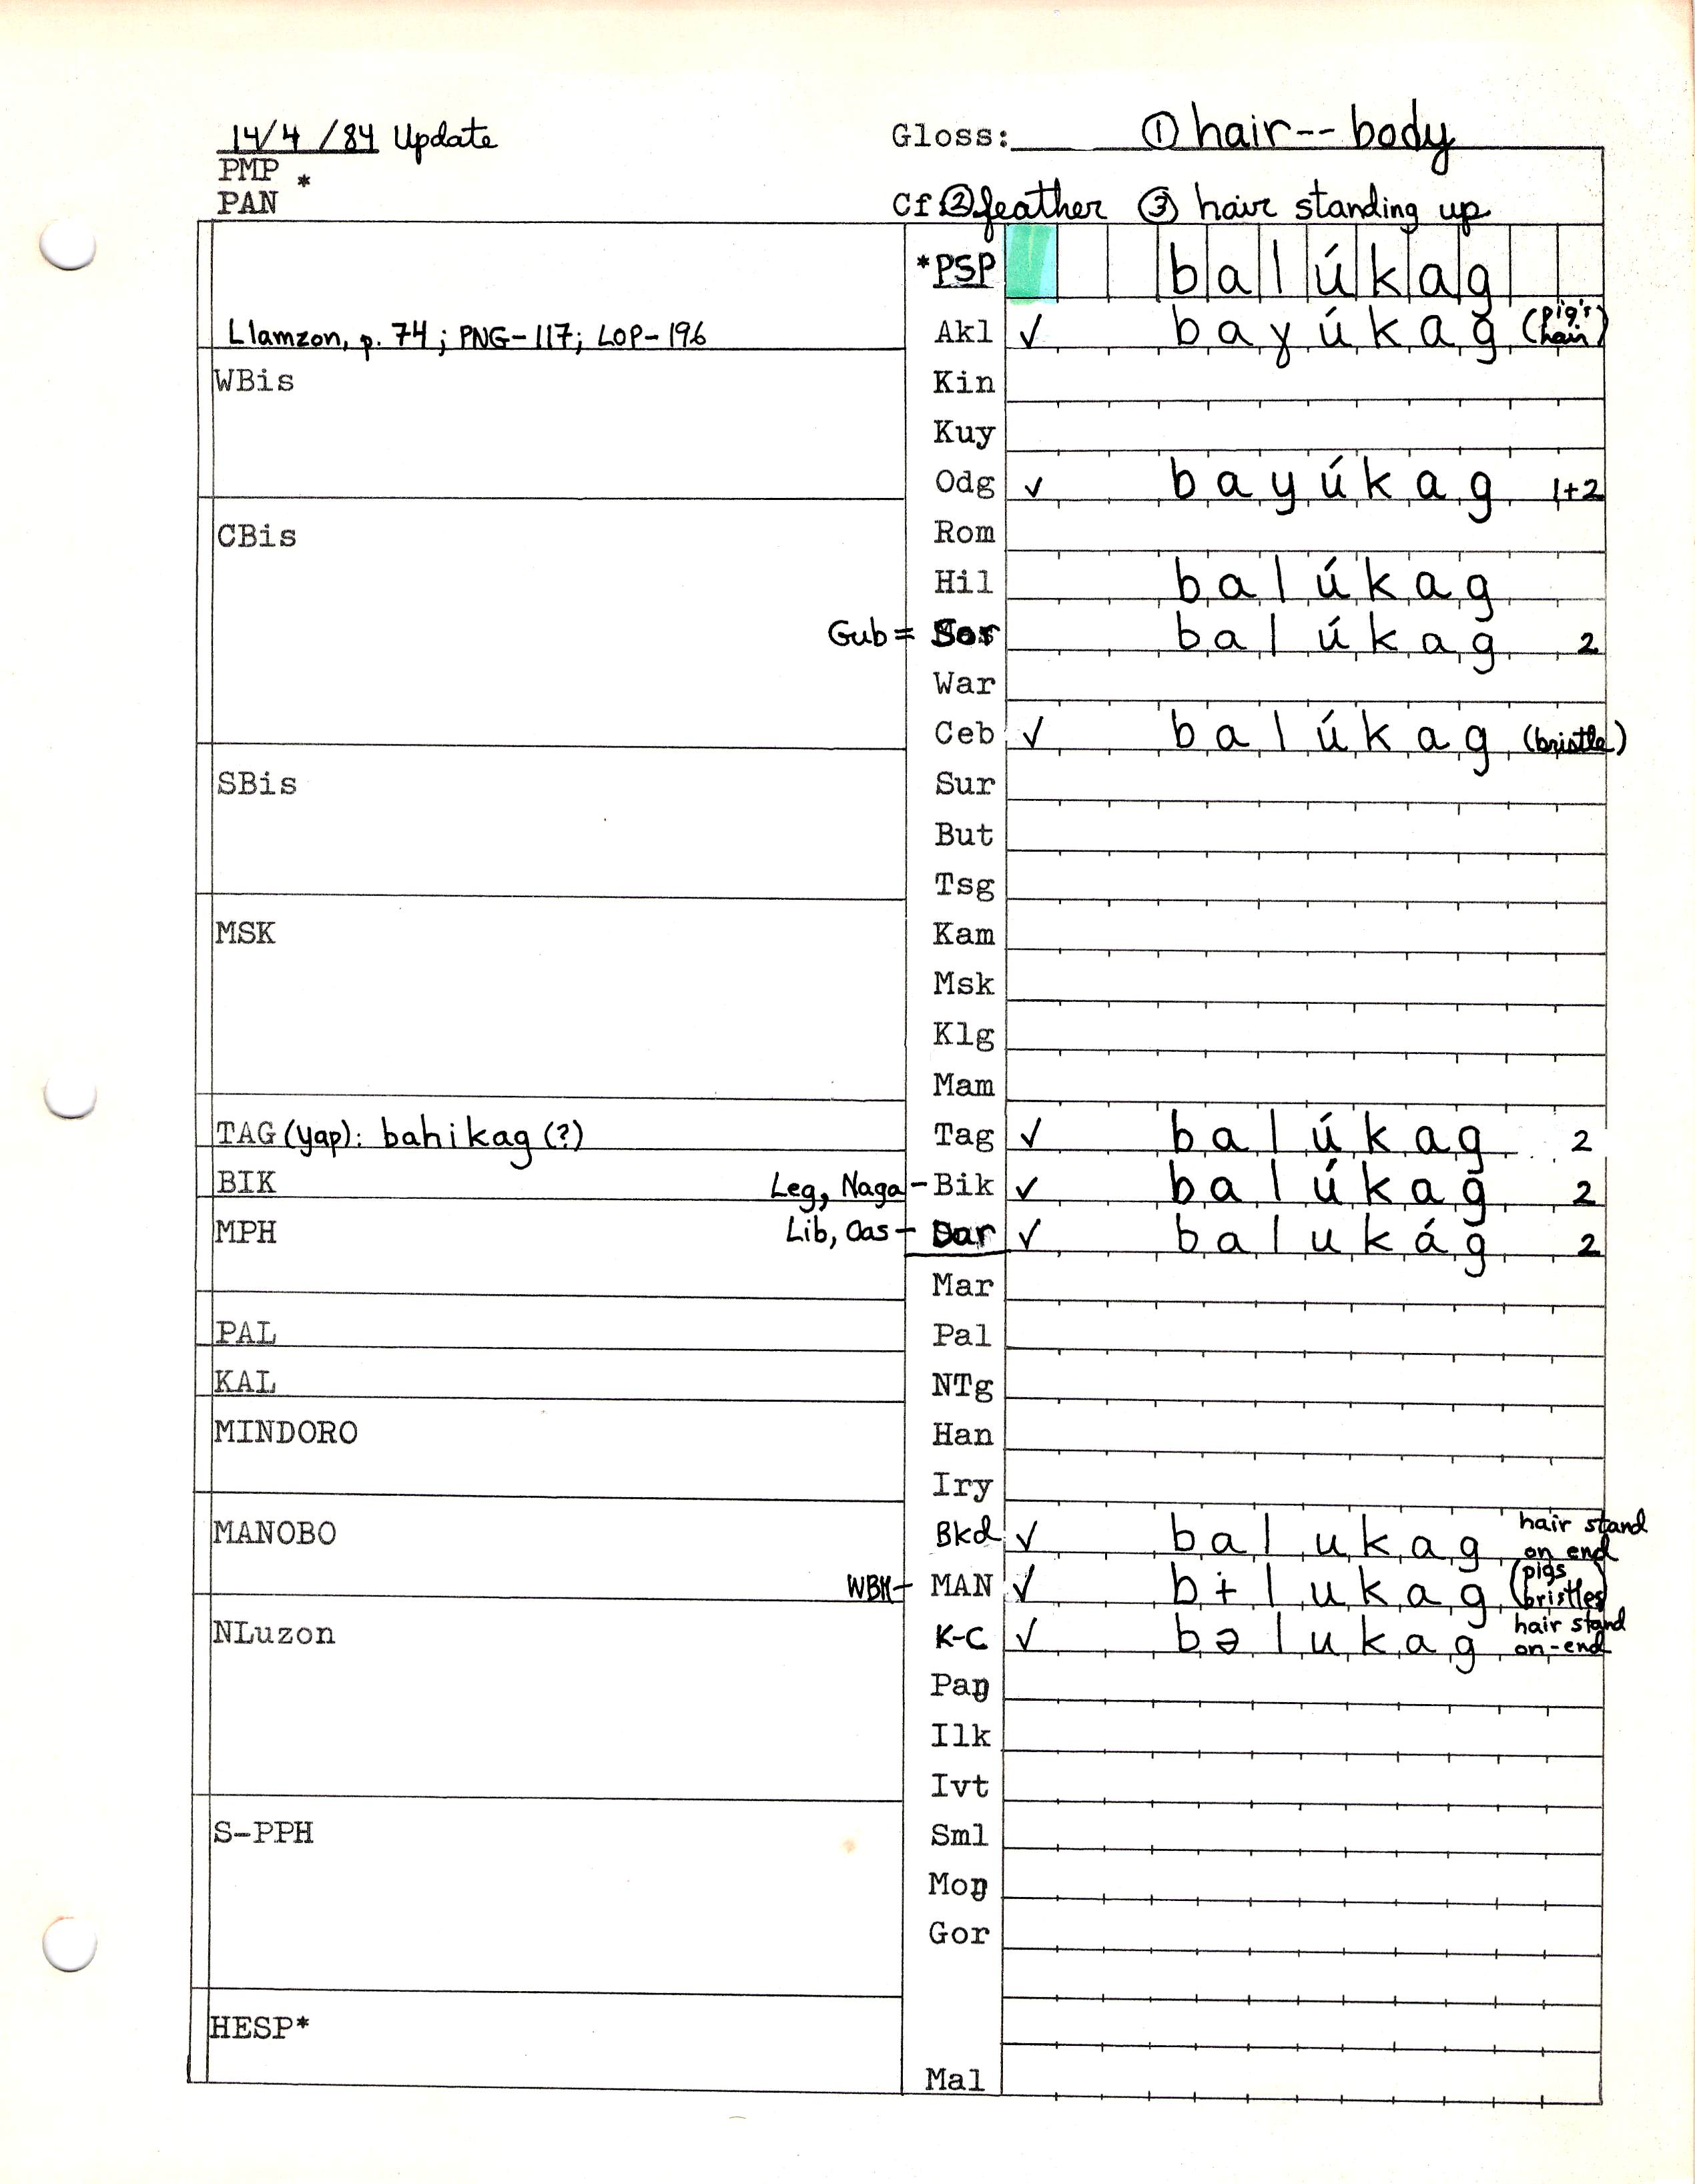 14/4/84 Update
Gloss: ① hair-- body
PMP *
PAN
Cf ② feather ③ hair standing up
*PSP balúkag
Llamzon, p. 74; PNG-117; LOP-196
Akl ✓ bayúkag (pig's hair)
WBis
Kin
Kuy
Odg ✓ bayúkag 1+2
CBis
Rom
Hil balúkag
Gub = Sor balúkag 2
War
Ceb ✓ balúkag (bristle)
SBis
Sur
But
Tsg
MSK
Kam
Msk
Klg
Mam
TAG (yap): bahikag (?)
Tag ✓ balúkag 2
BIK
Leg, Naga - Bik ✓ balúkag 2
MPH
Lib, Oas - Dar ✓ balukág 2
Mar
PAL
Pal
KAL
NTg
MINDORO
Han
Iry
MANOBO
Bkd ✓ balukag hair stand on end
WBM - MAN ✓ bɨlukag (pigs bristles)
NLuzon
K-C ✓ bəlukag hair stand on-end
Paŋ
Ilk
Ivt
S-PPH
Sml
Moŋ
Gor
HESP*
Mal